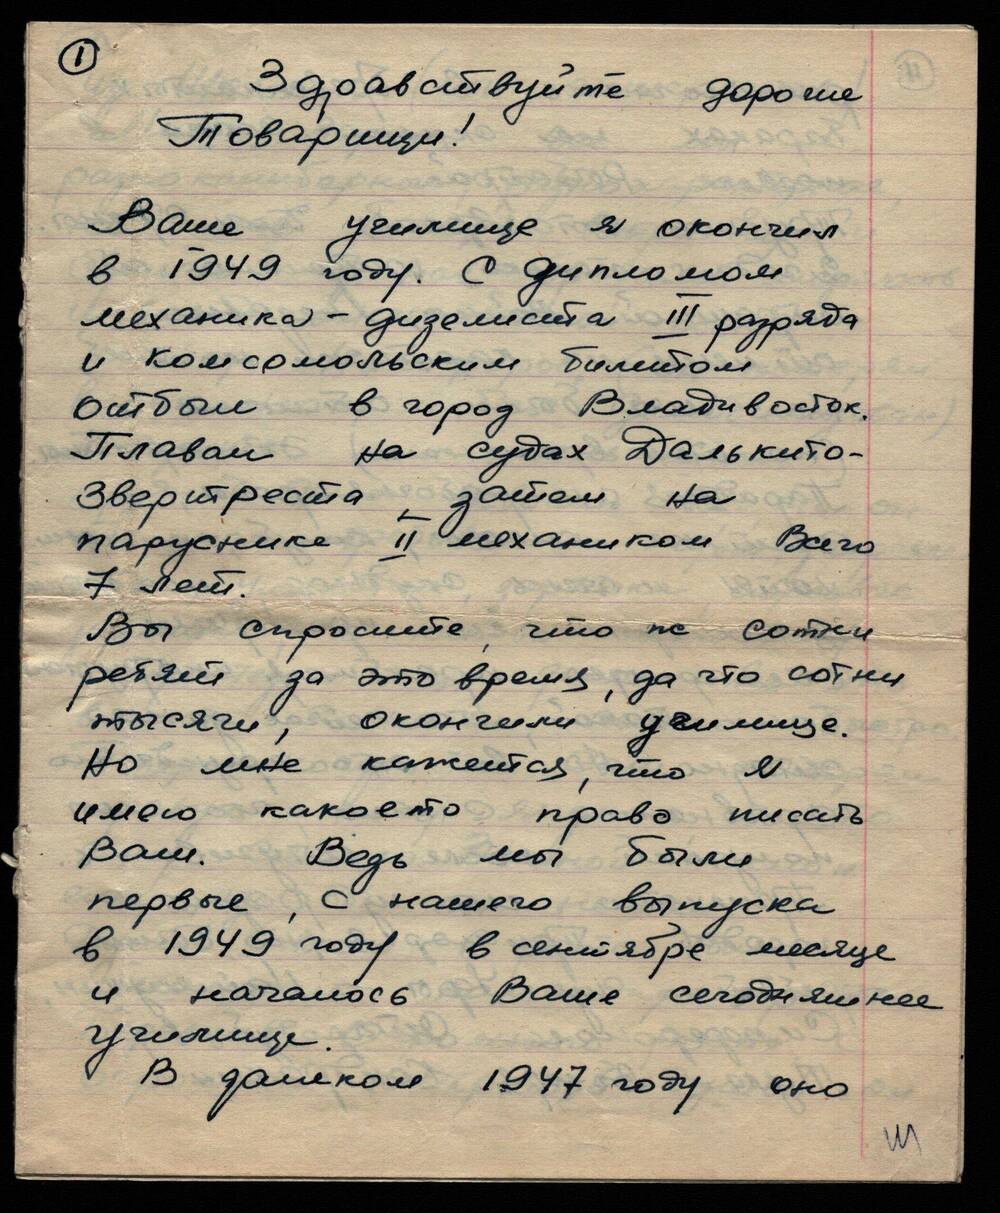 1
Здравствуйте дорогие
Товарищи!
Ваше училище я окончил
в 1949 году. С дипломом
механика-дизелиста III разряда
и комсомольским билетом
отбыл в город Владивосток.
Плавал на судах Далькито-
зверотреста, затем на
паруснике II механиком Всего
7 лет.
Вы спросите, что ж сотни
ребят за это время, да что сотни
тысячи, окончили училище.
Но мне кажется, что я
имею какоето право писать
Вам. Ведь мы были
первые, с нашего выпуска
в 1949 году в сентябре месяце
и началось Ваше сегодняшнее
училище.
В далеком 1947 году оно